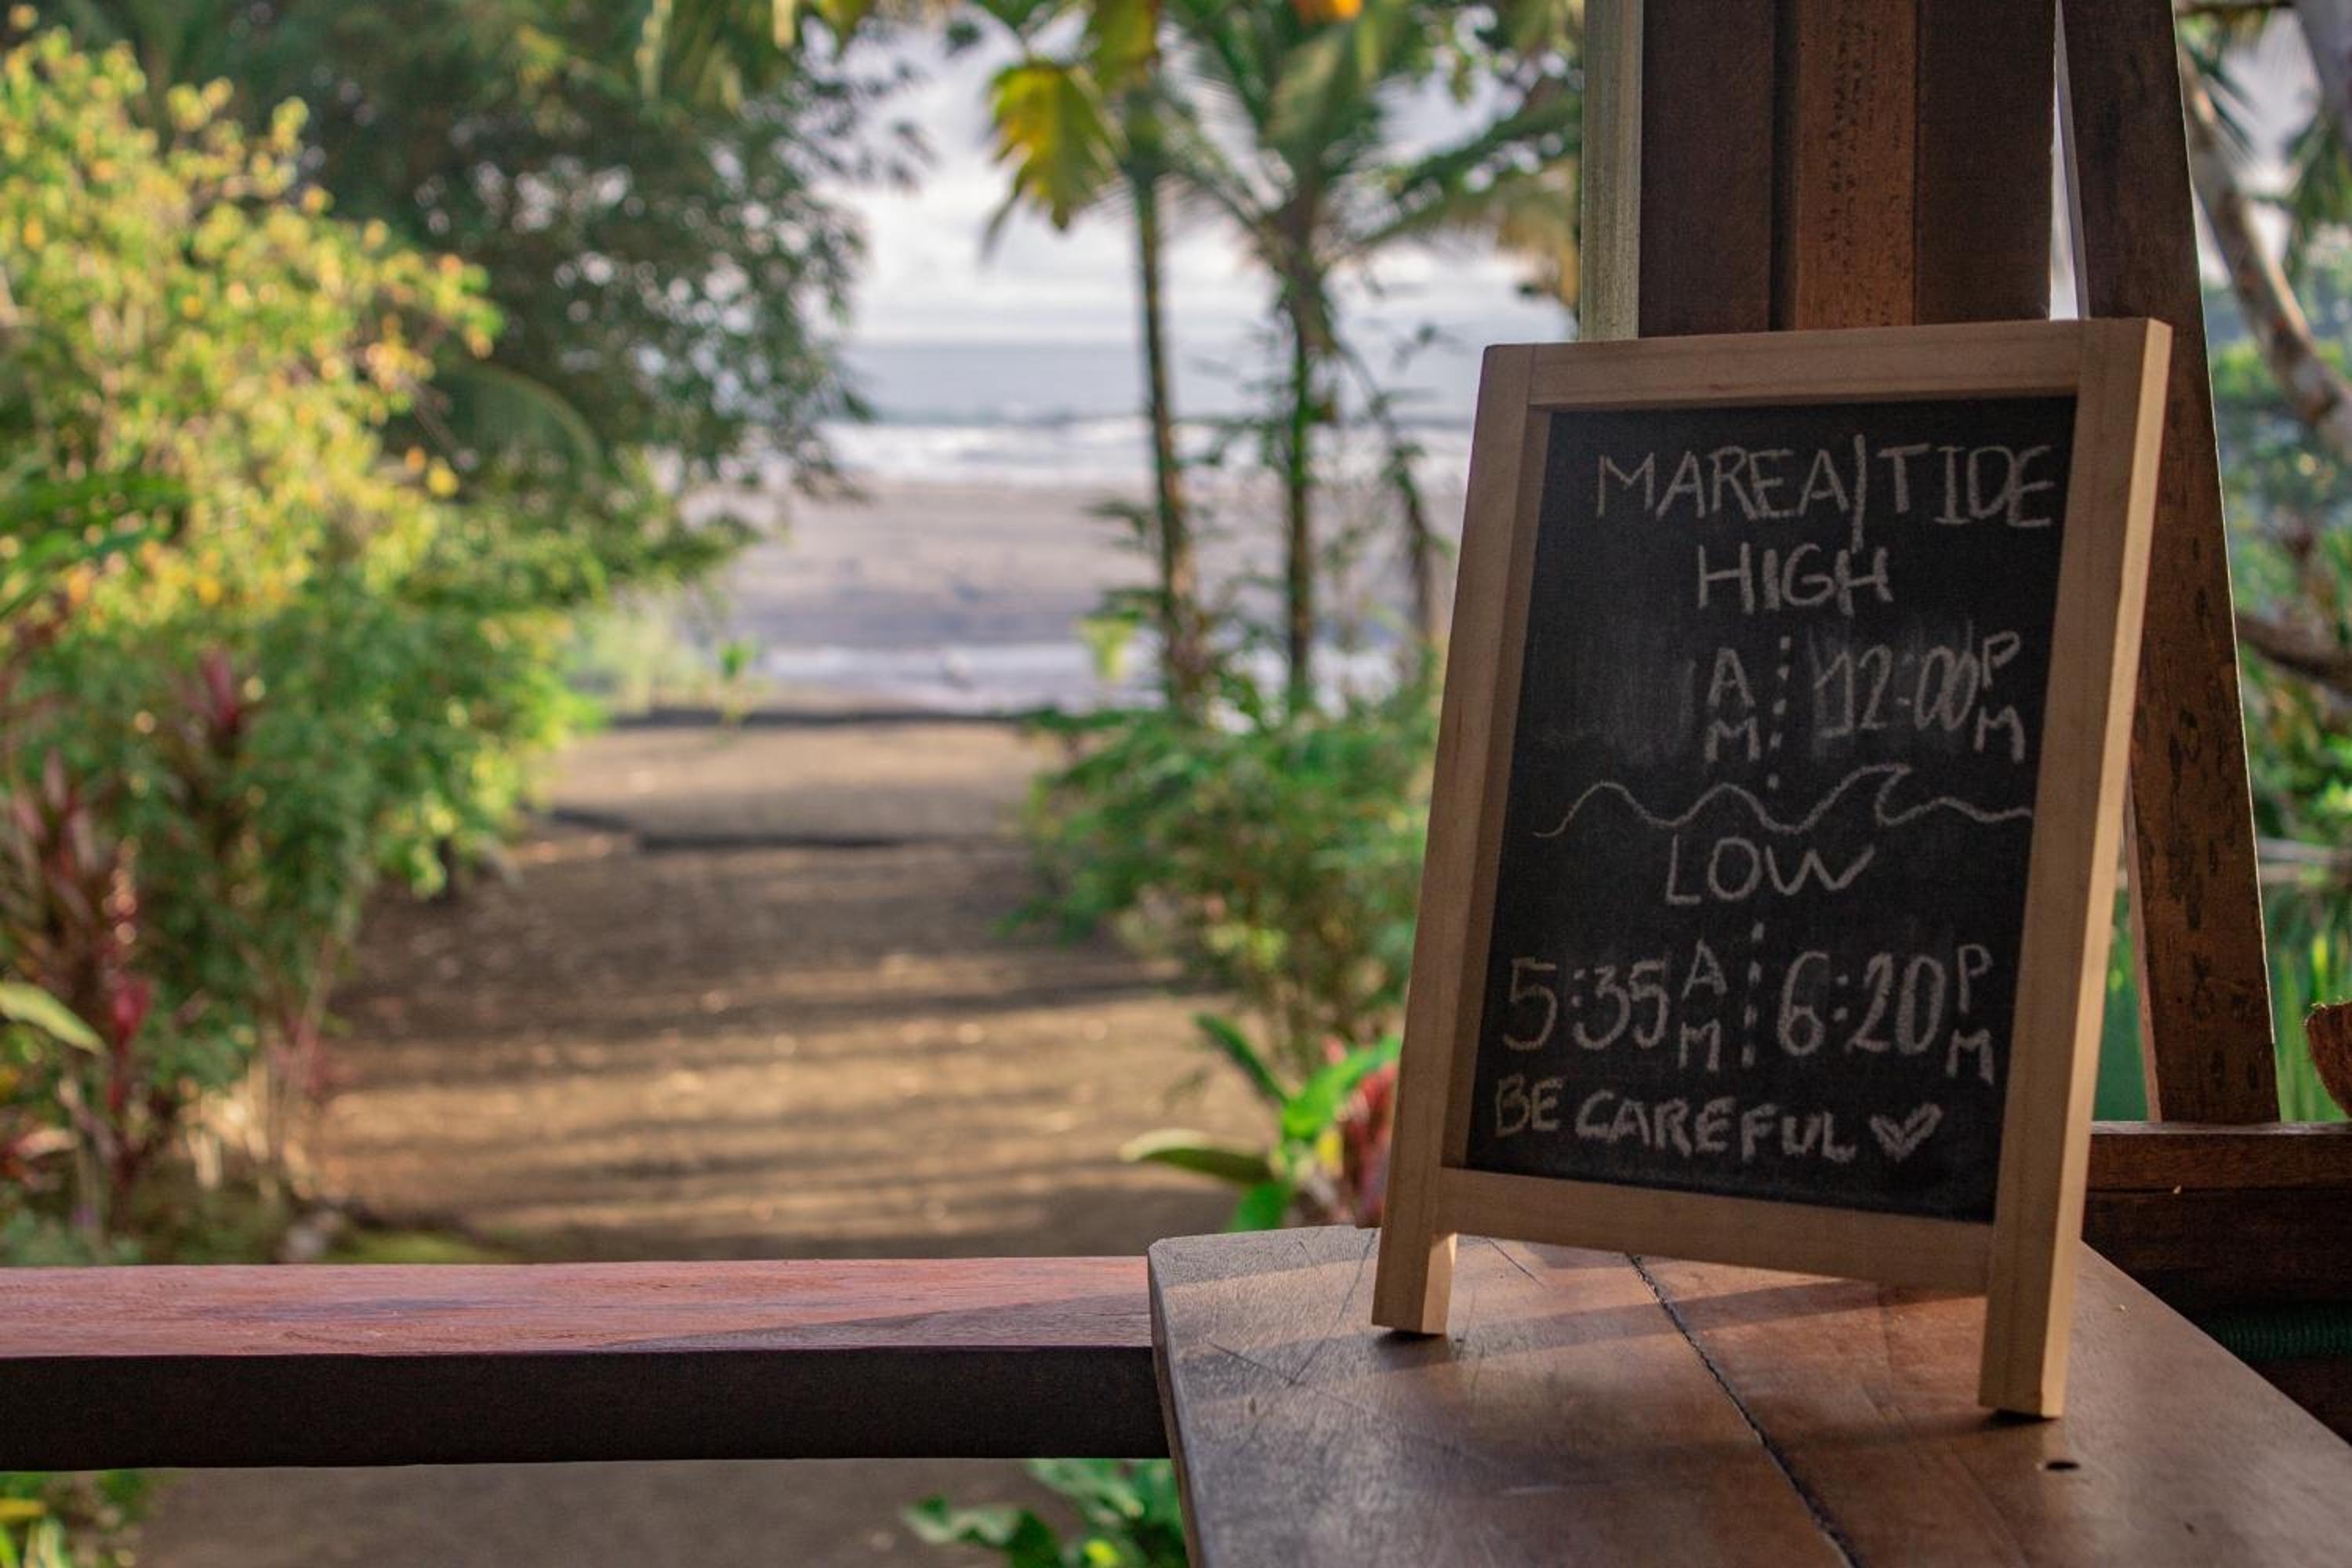 MAREA|TIDE
HIGH
AM 12:00PM
LOW
5:35AM 6:20PM
BE CAREFUL